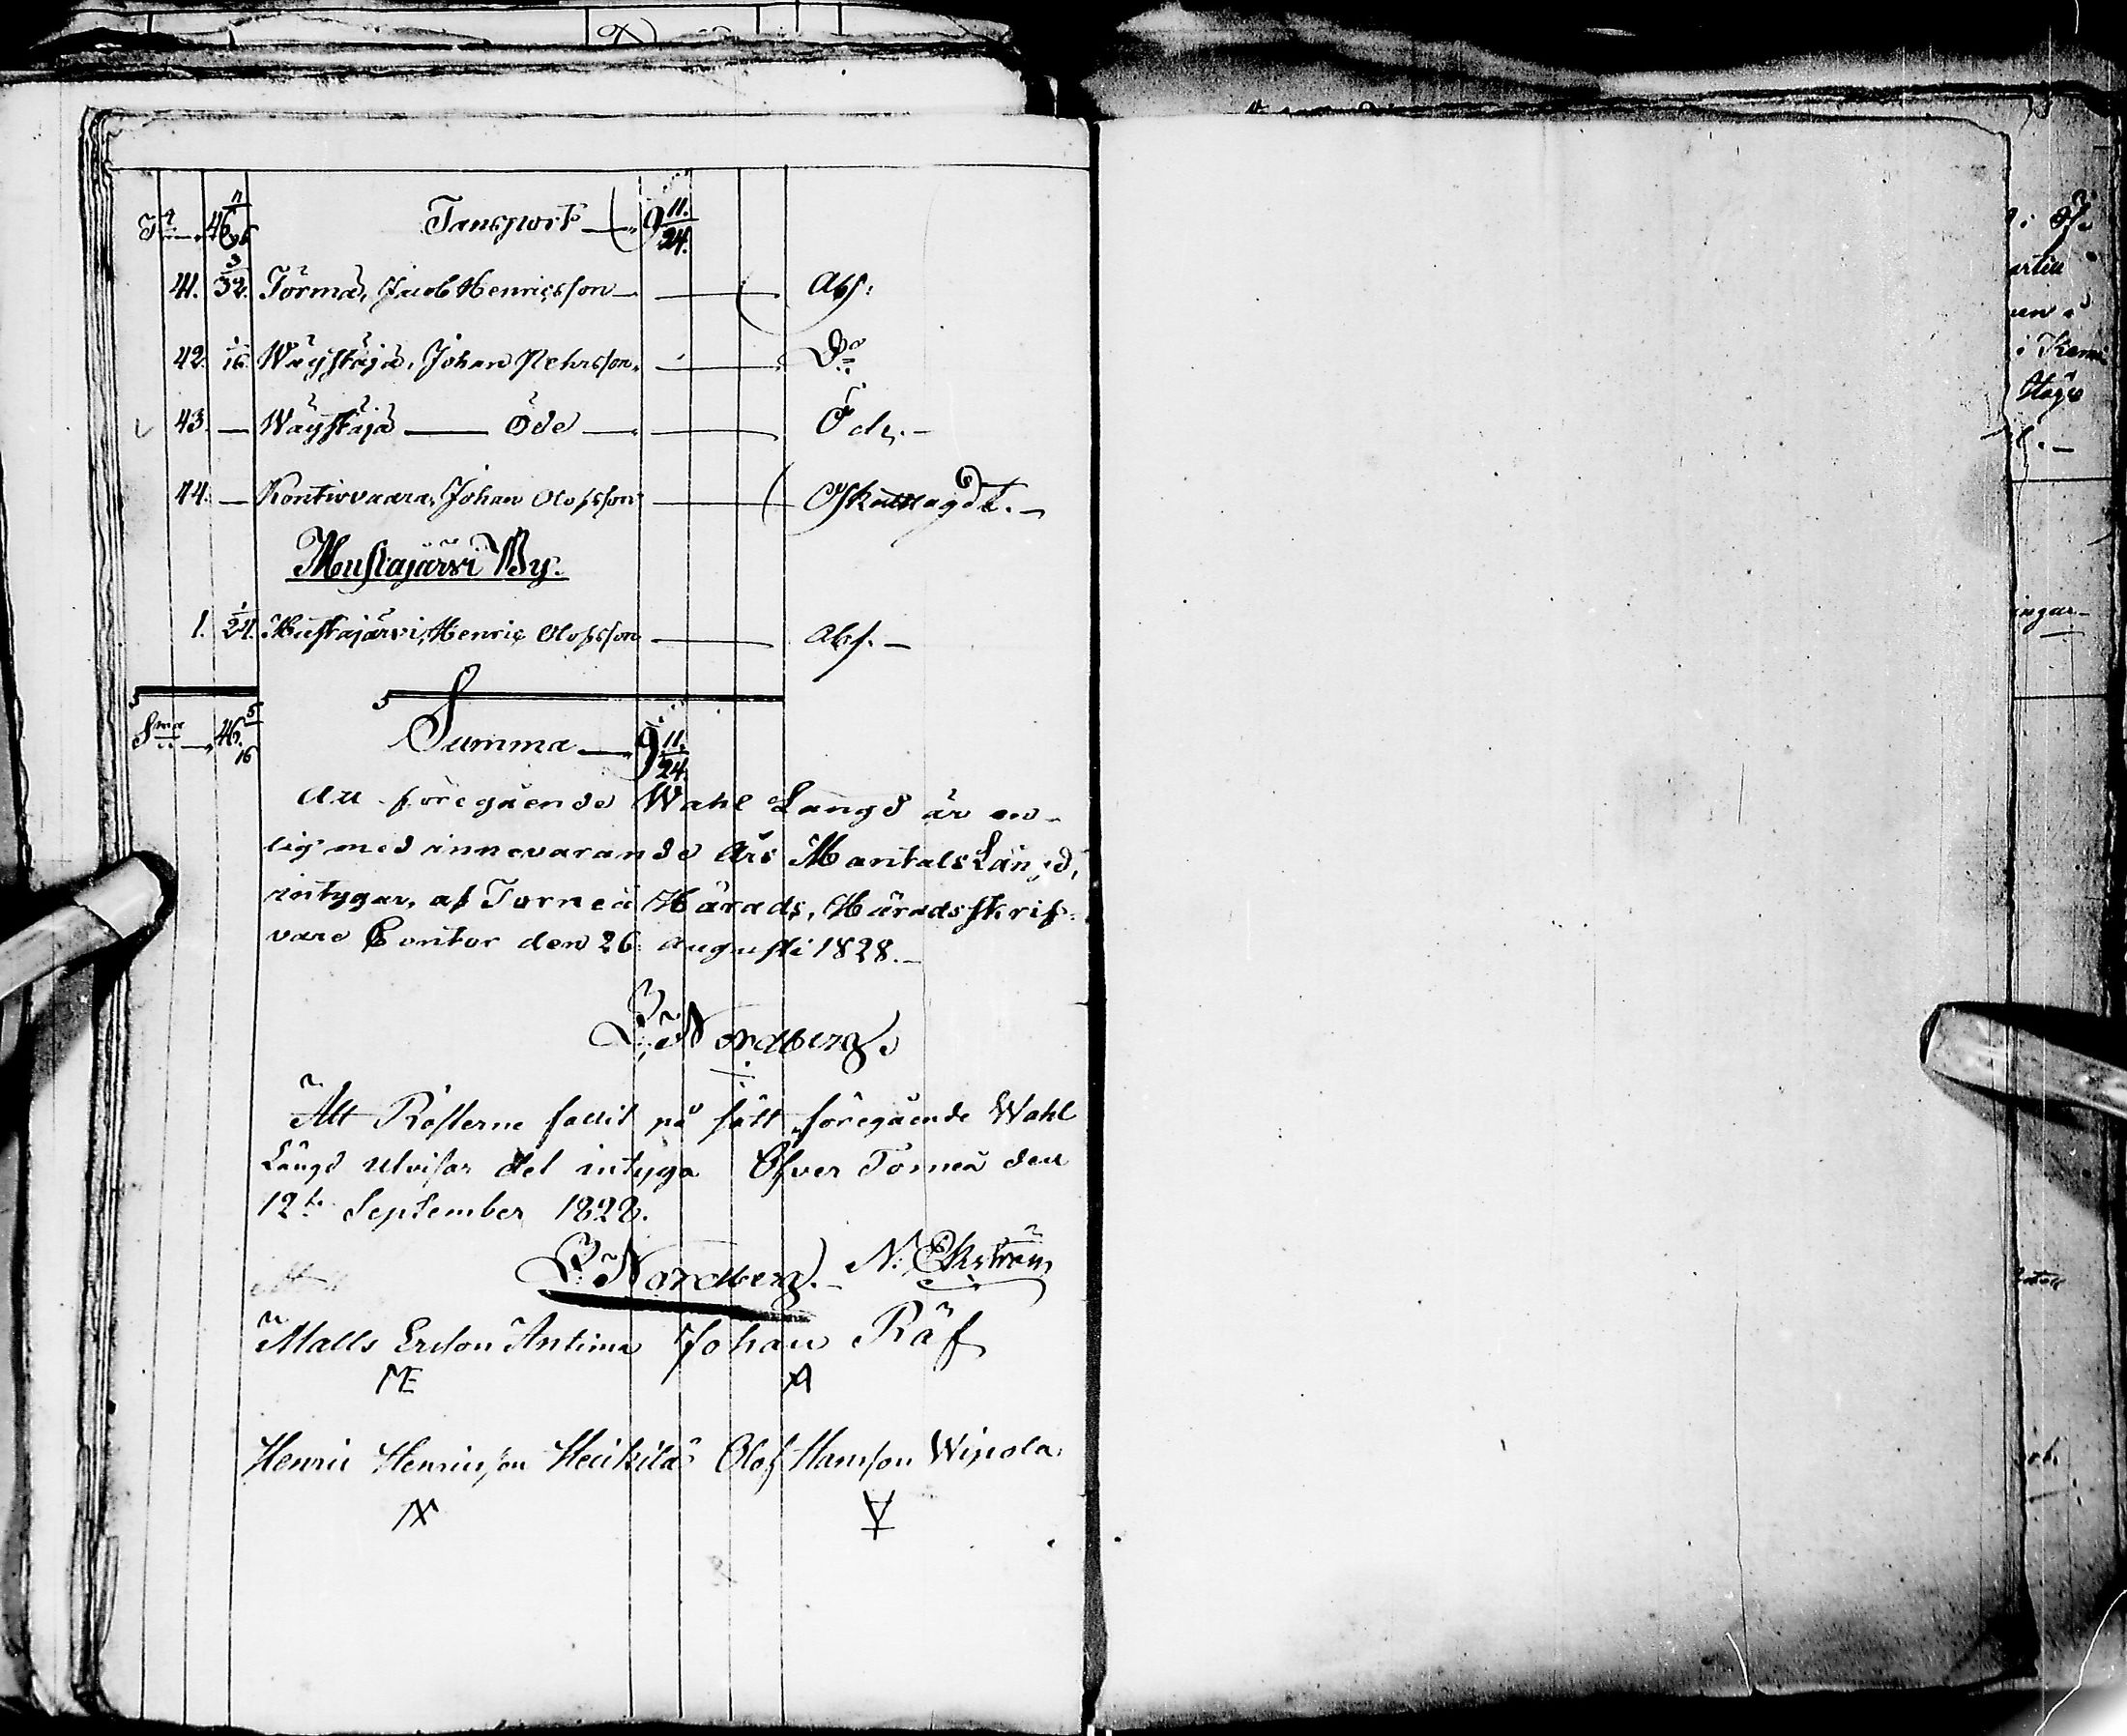 Tr. 46 11/96 Transport 9 11/24.
41. 3/32. Törmä, Jacob Henricsson Abs:
42. 1/16. Wäystäjä, Johan Pehrsson Do
43. — Wäystäjä — Öde — Öde. —
44. — Kontiovaara, Johan Olofsson Oskattlagdt. —
Mustajärvi By.
1. 1/24. Mustajärvi, Henric Olofsson Abs. —
Sma 46. 5/16 Summa 9 11/24.
Att föregående Wahl Längd är en-
lig med innevarande Års Mantals Längd,
intygar, af Torneå Härads, Häradsskrif-
vare Contor den 26 Augusti 1828. —
Nordberg.
Att Rösterne fallit på sätt föregående Wahl
Längd utvisar det intyga Öfver Torneå den
12te September 1828.
Nordberg. — N: Ekström
Matts Ersson Antima Johan Räf
ME
Henric Henricsson Heikilä Olof Hansson Wipola